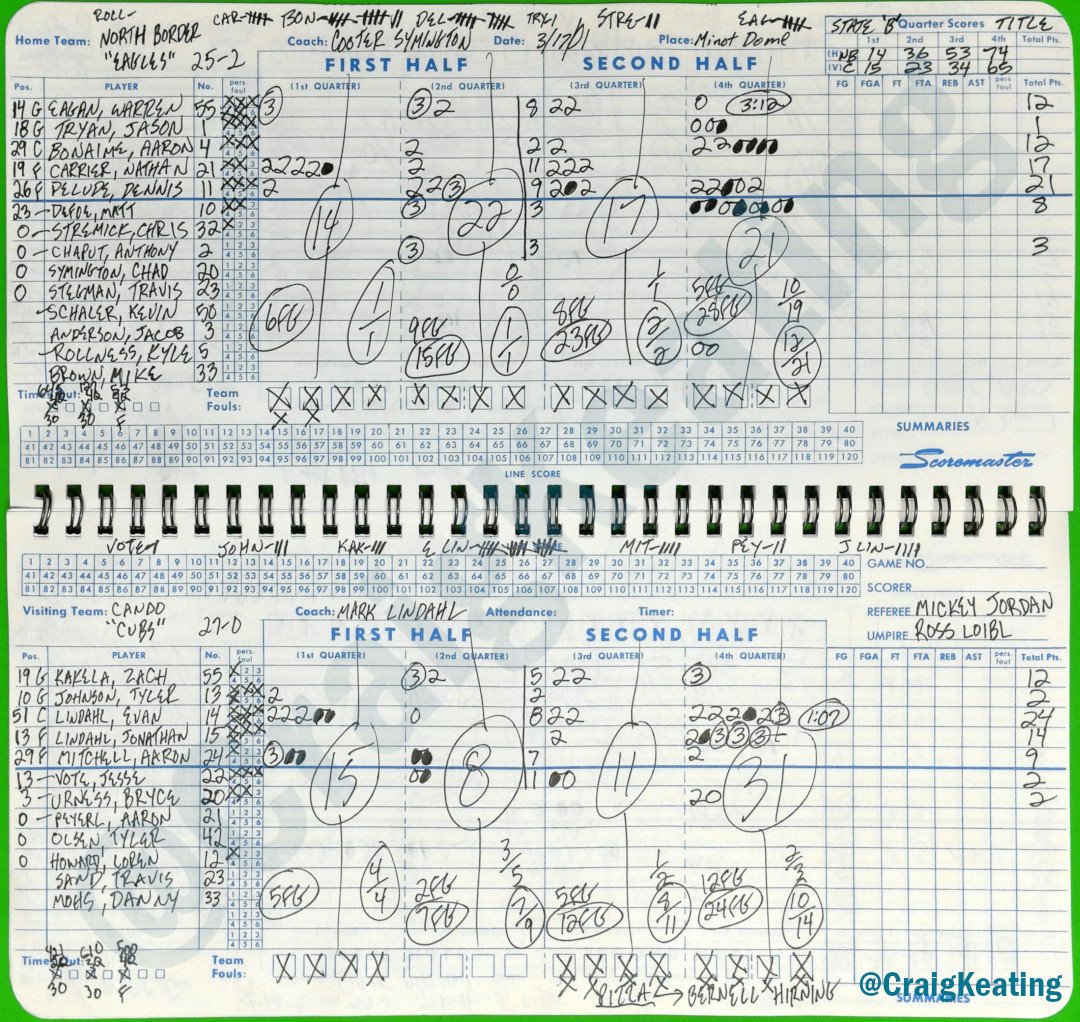 ROLL- CAR- BON- DEL- TRY1 STRE-11 EAG-
Home Team: NORTH BORDER
"EAGLES" 25-2
Coach: COOTER SYMINGTON Date: 3/17/01 Place: Minot Dome
STATE "B" Quarter Scores TITLE
1st 2nd 3rd 4th Total Pts.
(H) NB 14 36 53 74
(V) C 15 23 34 65
FIRST HALF SECOND HALF
Pos. PLAYER No. pers. foul (1st QUARTER) (2nd QUARTER) (3rd QUARTER) (4th QUARTER) FG FGA FT FTA REB AST pers foul Total Pts.
14 G EAGAN, WARREN 55 3 3 2 8 2 2 0 3:12 12
18 G TRYAN, JASON 1 1
29 C BONAIME, AARON 4 2 2 2 2 2 12
19 F CARRIER, NATHAN 21 2 2 2 2 2 11 2 2 2 17
26 F DELUDE, DENNIS 11 2 2 2 3 9 2 2 2 2 0 2 21
23 - DEFOE, MATT 10 3 3 8
0 - STREMICK, CHRIS 32
0 - CHAPUT, ANTHONY 2 3 3 3
0 SYMINGTON, CHAD 20
0 STEGMAN, TRAVIS 23
- SCHALER, KEVIN 50
ANDERSON, JACOB 3
- ROLLNESS, KYLE 5
BROWN, MIKE 33
14 22 17 21
6FG 1/1 9FG 15FG 0/0 1/1 8FG 23FG 1/1 2/2 5FG 28FG 10/19 12/21
Time Out: 30 30 F
Team Fouls:
1 2 3 4 5 6 7 8 9 10 11 12 13 14 15 16 17 18 19 20 21 22 23 24 25 26 27 28 29 30 31 32 33 34 35 36 37 38 39 40
41 42 43 44 45 46 47 48 49 50 51 52 53 54 55 56 57 58 59 60 61 62 63 64 65 66 67 68 69 70 71 72 73 74 75 76 77 78 79 80
81 82 83 84 85 86 87 88 89 90 91 92 93 94 95 96 97 98 99 100 101 102 103 104 105 106 107 108 109 110 111 112 113 114 115 116 117 118 119 120
SUMMARIES
Scoremaster
LINE SCORE
VOTE-1 JOHN-111 KAK-111 E LIN- MIT-1111 PEY-11 J LIN-1111
1 2 3 4 5 6 7 8 9 10 11 12 13 14 15 16 17 18 19 20 21 22 23 24 25 26 27 28 29 30 31 32 33 34 35 36 37 38 39 40
41 42 43 44 45 46 47 48 49 50 51 52 53 54 55 56 57 58 59 60 61 62 63 64 65 66 67 68 69 70 71 72 73 74 75 76 77 78 79 80
81 82 83 84 85 86 87 88 89 90 91 92 93 94 95 96 97 98 99 100 101 102 103 104 105 106 107 108 109 110 111 112 113 114 115 116 117 118 119 120
GAME NO.
SCORER
REFEREE MICKEY JORDAN
UMPIRE ROSS LOIBL
Visiting Team: CANDO
"CUBS" 27-0
Coach: MARK LINDAHL Attendance: Timer:
FIRST HALF SECOND HALF
Pos. PLAYER No. pers. foul (1st QUARTER) (2nd QUARTER) (3rd QUARTER) (4th QUARTER) FG FGA FT FTA REB AST pers foul Total Pts.
19 G KAKELA, ZACH 55 3 2 5 2 2 3 12
10 G JOHNSON, TYLER 13 2 2 2
51 C LINDAHL, EVAN 14 2 2 2 0 8 2 2 2 2 2 2 3 1:07 24
13 F LINDAHL, JONATHAN 15 2 2 3 3 3 14
29 F MITCHELL, AARON 24 3 7 2 9
13 - VOTE, JESSE 22 1 2
3 - URNESS, BRYCE 20 2 0 2
0 - PEYERL, AARON 21
0 OLSEN, TYLER 42
0 HOWARD, LOREN 12
SAND, TRAVIS 23
MOHS, DANNY 33
15 8 11 31
5FG 4/4 2FG 7FG 3/5 7/9 5FG 12FG 1/2 8/11 12FG 24FG 2/3 10/14
Time Out: 30 30 F
Team Fouls:
PIZZA → BERNELL HIRNING
SUMMARIES
@CraigKeating